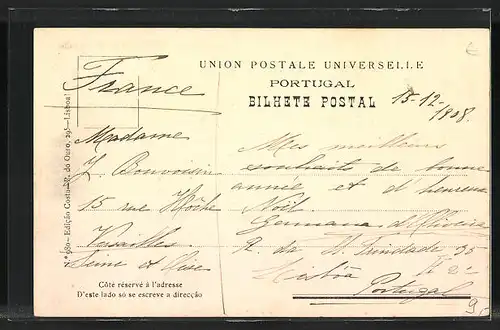 UNION POSTALE UNIVERSELLE
PORTUGAL
BILHETE POSTAL
France
15-12-1908.
Madame
J. Bouvoisin
15 rue Hoche
Versailles
Seine et Oise
Mes meilleurs
souhaits de bonne
année et d'heureux
Noël.
Germana d'Oliveira
R. da St. Trindade 35
Lisbôa
Portugal
Côte réservé à l'adresse
D'este lado só se escreve a direcção
Edição Costa—R. do Ouro, 295—Lisboa
9